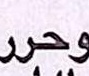 وحرر